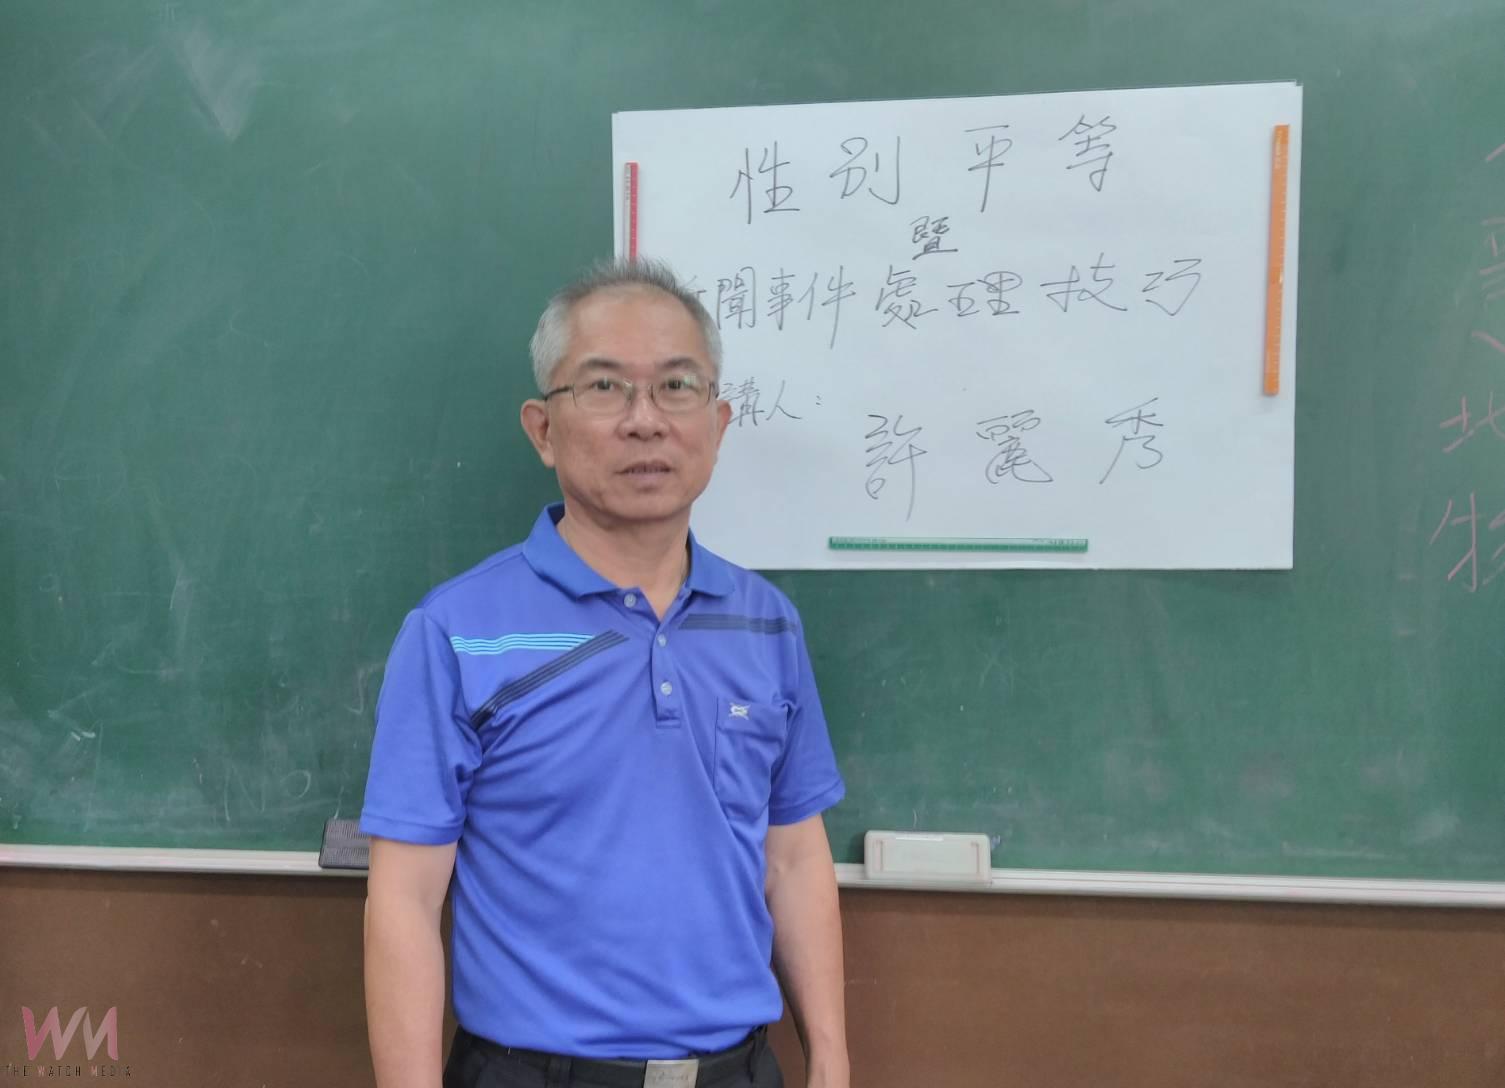 性別平等
暨
聞事件處理技巧
講人：
許麗秀
地
物
NO
WM
THE WATCH MEDIA